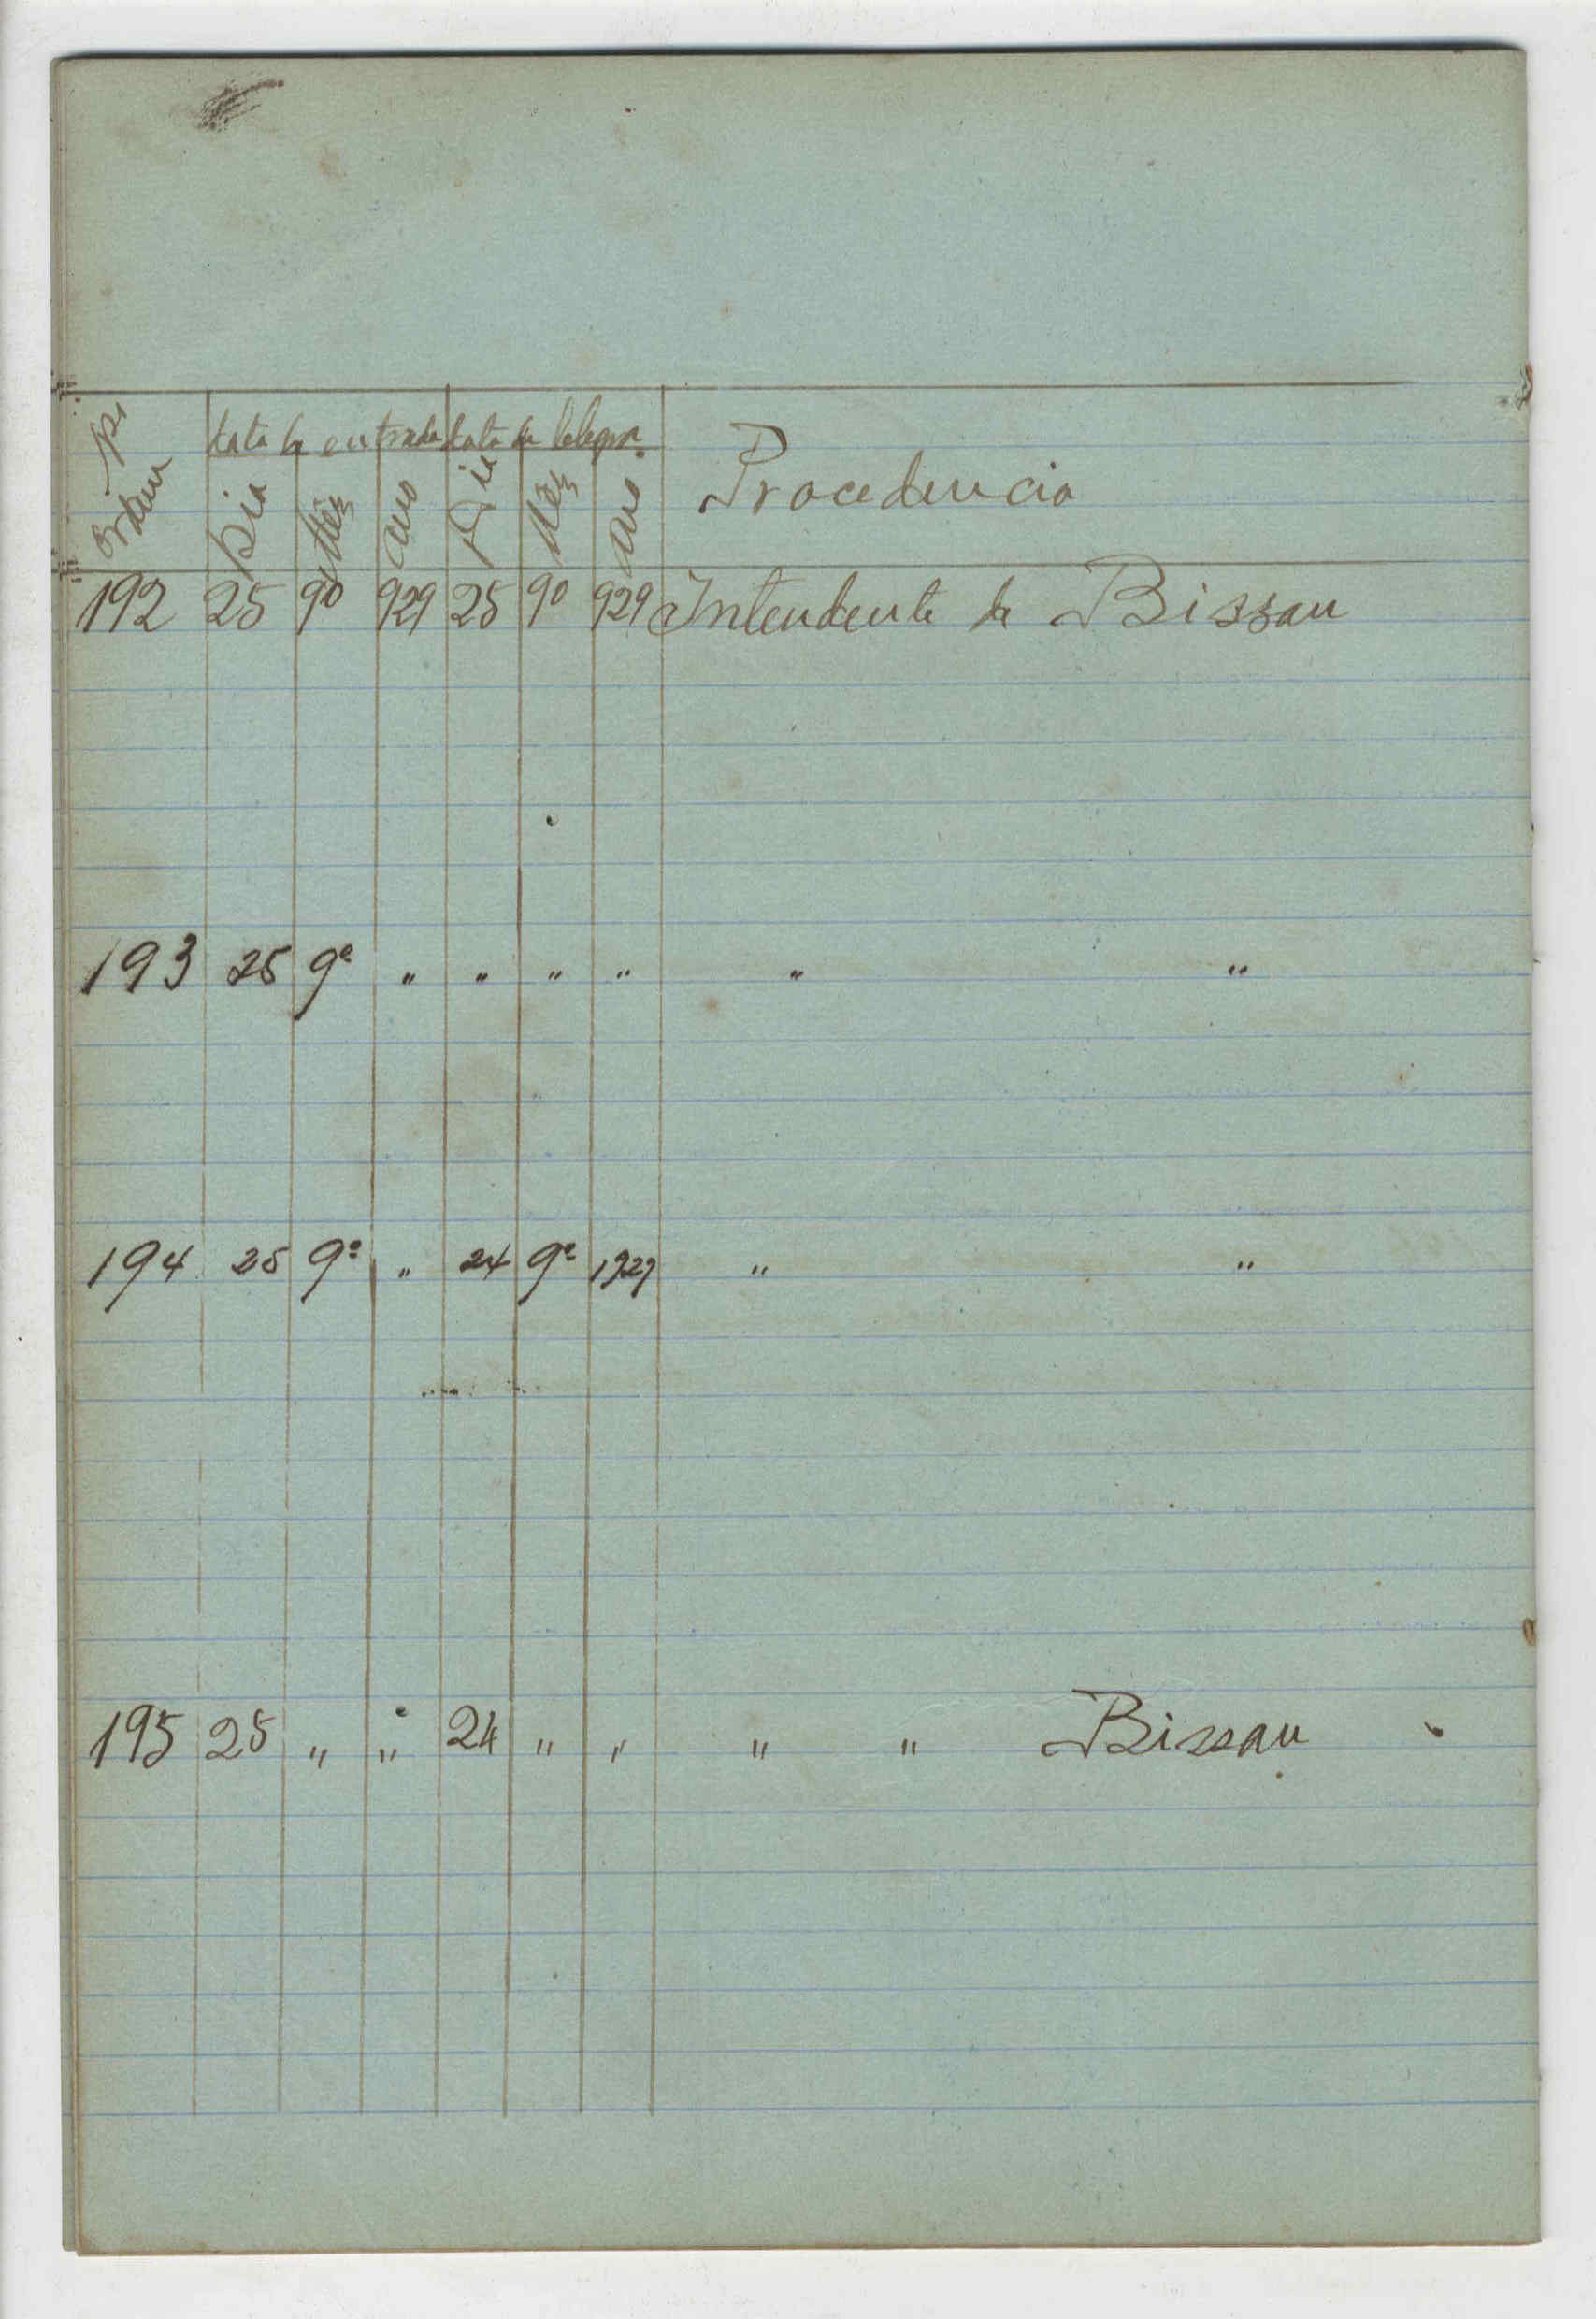 Nº Ordem data de entrada data de telegra. Procedencia
Dia Mês Ano Dia Mês Ano
192 25 9º 929 25 9º 929 Intendente de Bissau
193 25 9º " " " " " "
194 25 9º " 24 9º 1929 " "
195 25 " " 24 " " " " Bissau